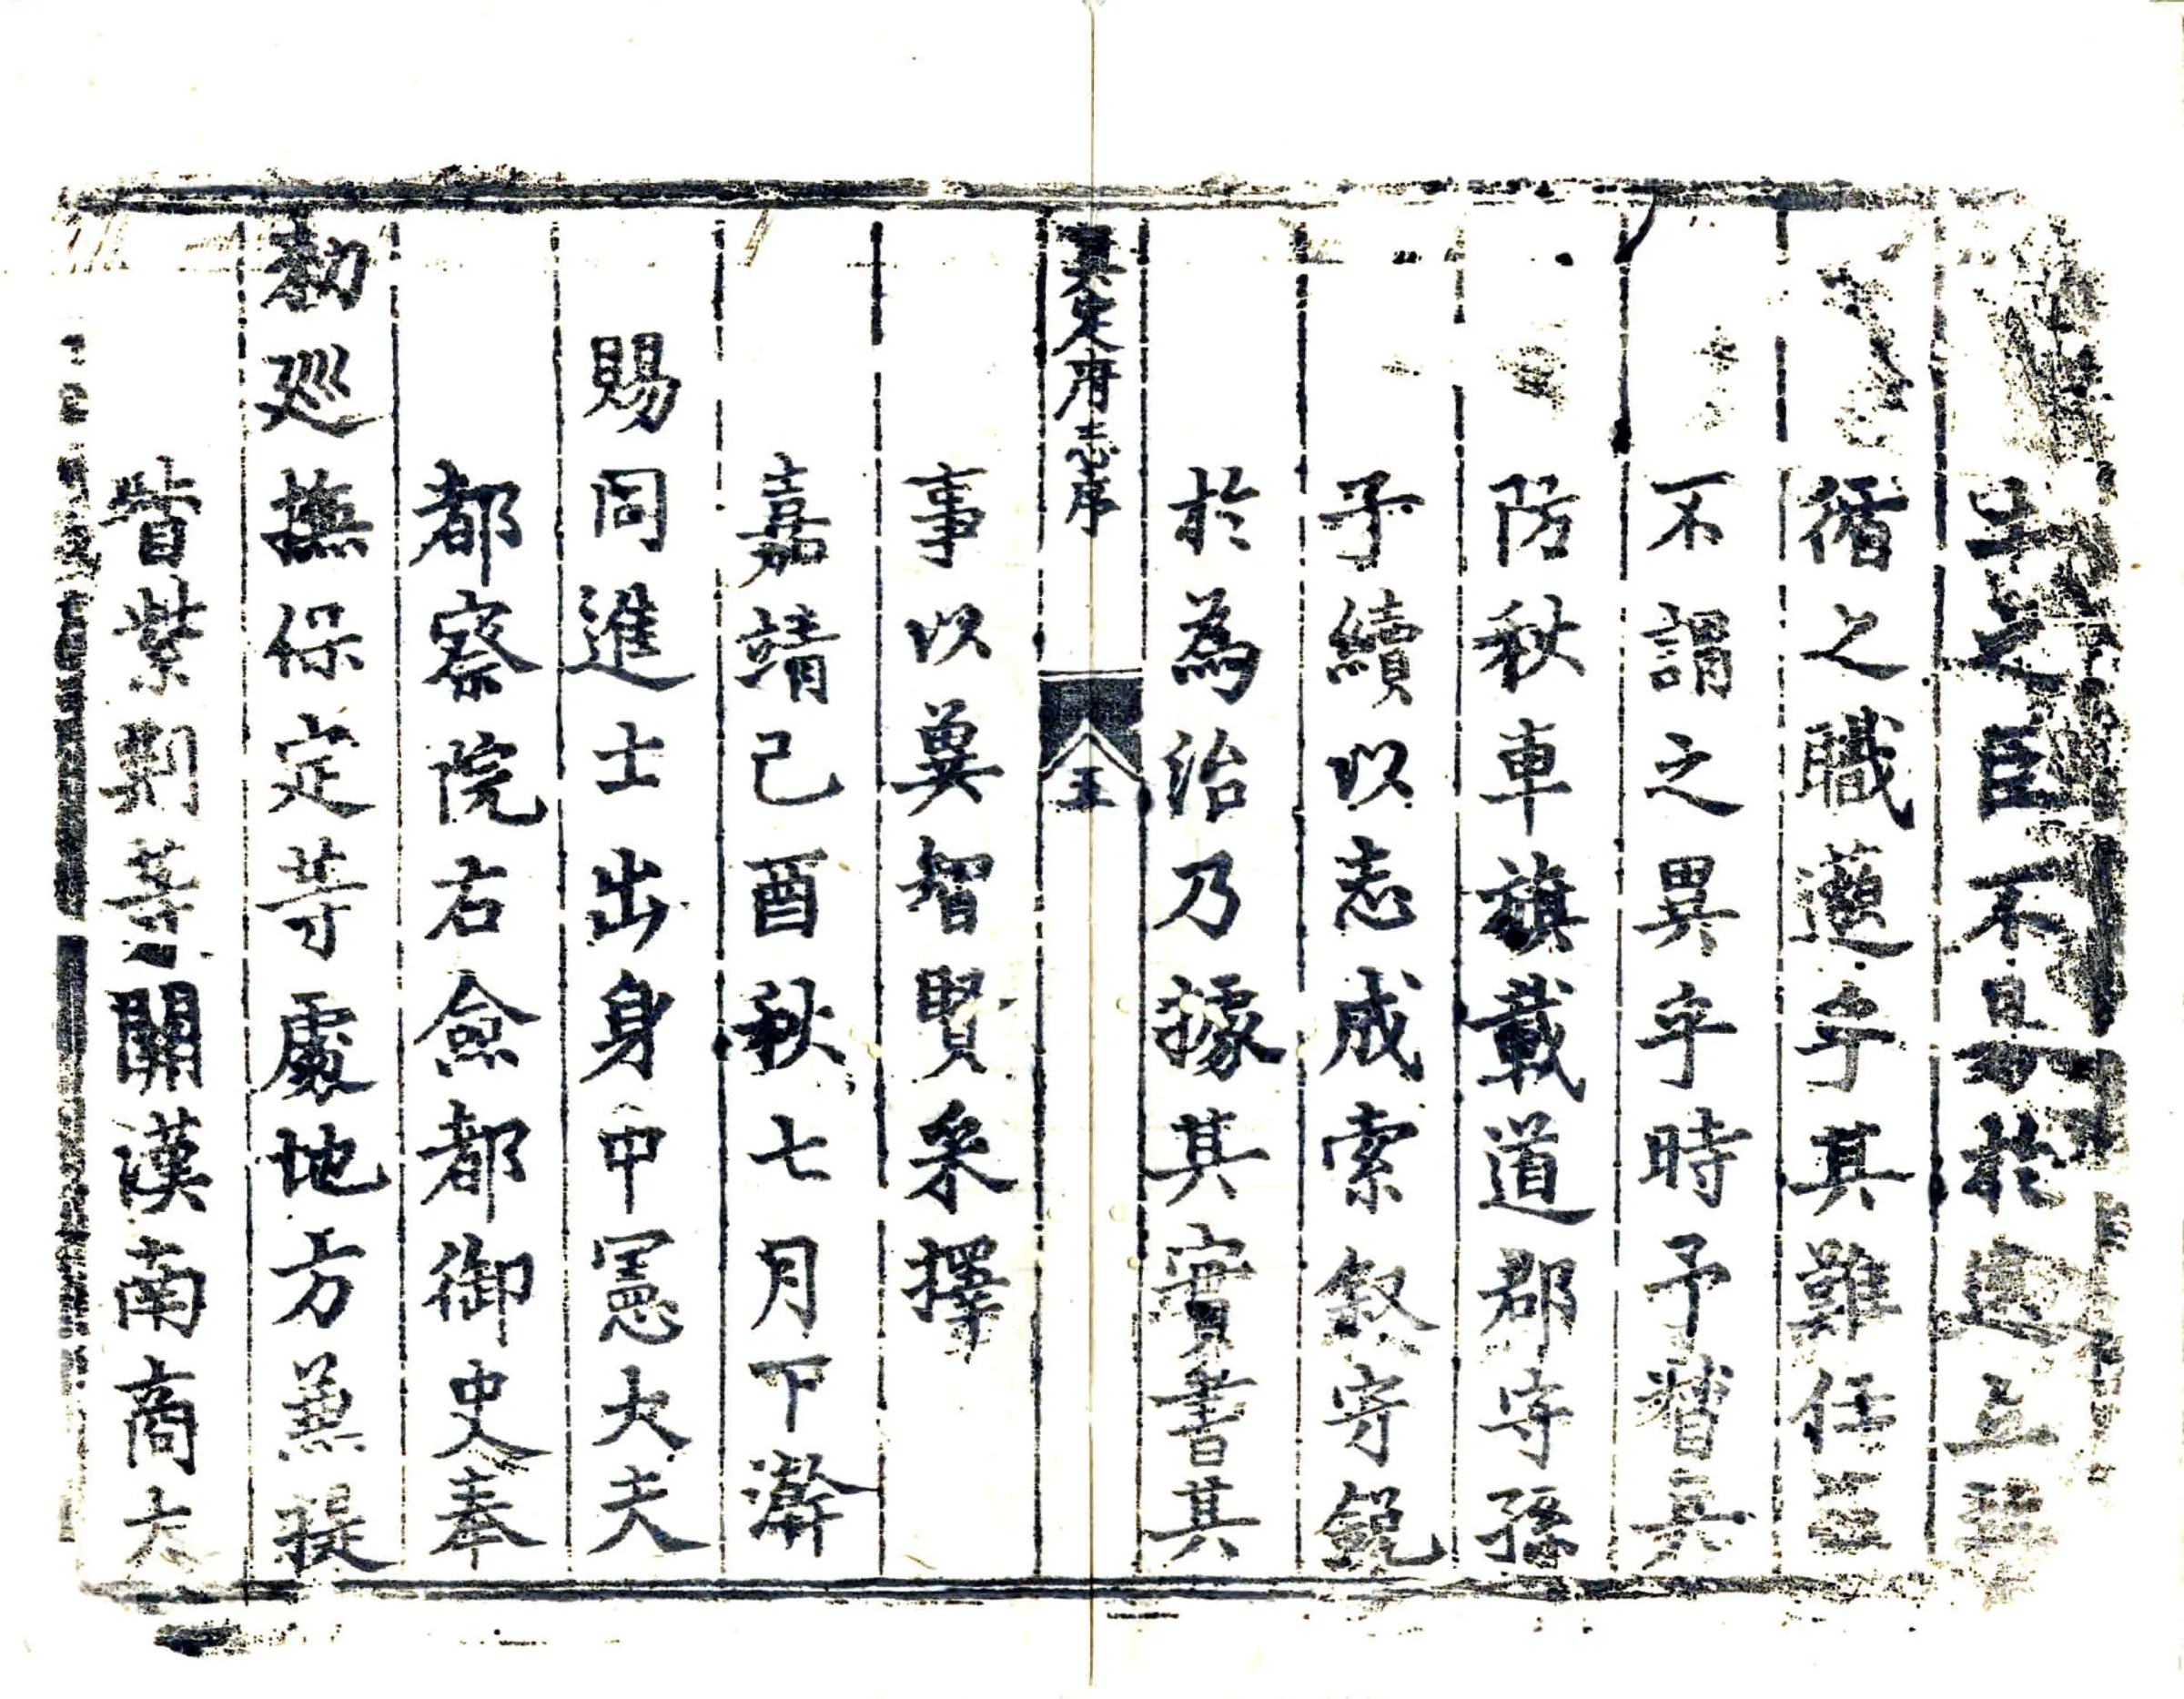 之臣不於立
循之職蘧乎其難任
不謂之異乎時予督兵
防秋車旗載道郡守孫
子續以志成索叙寄銳
於為治乃據其實書其
真定府志序
五
事以冀智賢采擇
嘉靖己酉秋七月下澣
賜同進士出身中憲大夫
都察院右僉都御史奉
敕廵撫保定等處地方兼提
督紫荊等關漢南商大